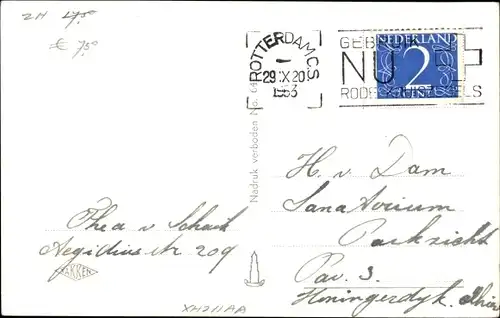 2H 4,50
€ 7,50
ROTTERDAM CS
29.X 20
1953
GEBRUIK
NU
RODE
ELS
NEDERLAND
2
CENT
Nadruk verboden No.
H. v Dam
Sanatorium
Parkzicht
Pav. 3.
Honingerdyk.
Thea v Schaik
Aegidiusstr 209
TAKKEN
XH211AA